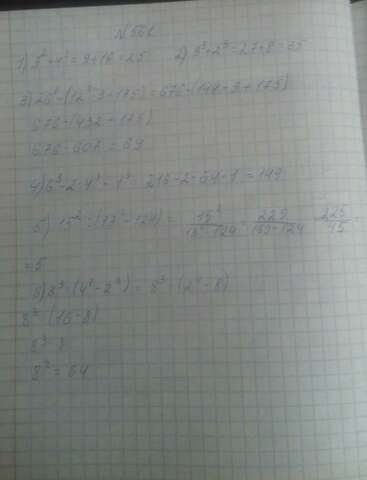 № 562
1) 3² + 4² = 9 + 16 = 25 2) 3³ + 2³ = 27 + 8 = 35
3) 26² - (12² · 3 + 175) = 676 - (144 · 3 + 175)
676 - (432 + 175)
676 - 607 = 69
4) 6³ - 2 · 4³ - 1³ = 216 - 2 · 64 - 1 = 149
5) 15² : (13² - 124) = 15² / 13² - 124 = 225 / 169 - 124 = 225 / 45 =
= 5
8³ : (4² - 2³) = 8³ : (2⁴ - 8)
8³ : (16 - 8)
8³ :
8² = 64